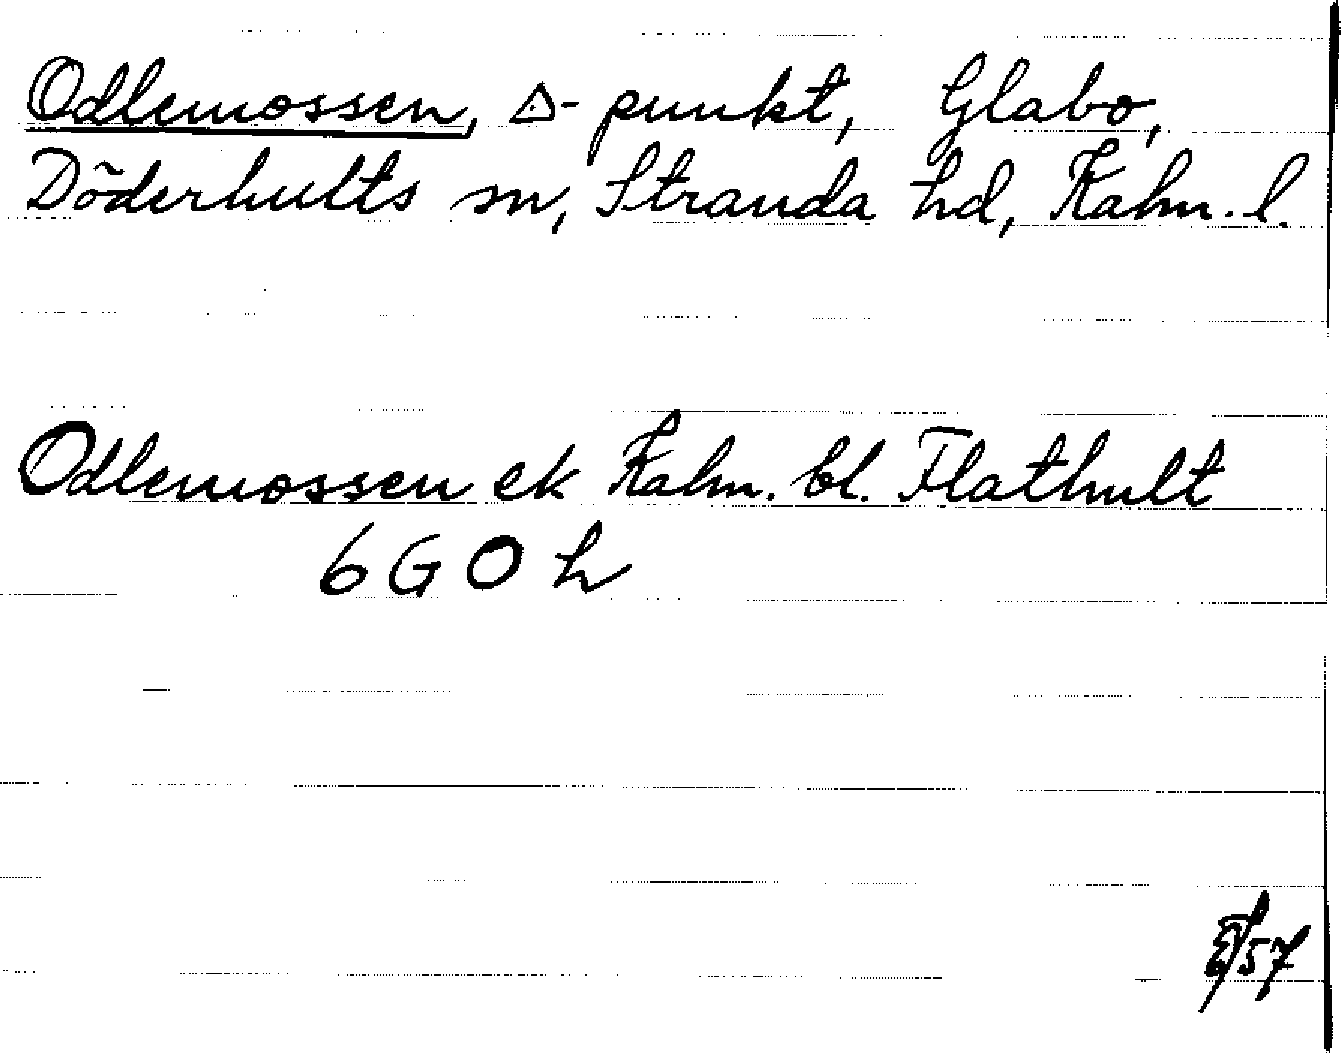 Odlemossen, △-punkt, Glabo,
Döderhults sn, Stranda hd, Kalm. l.
Odlemossen ek Kalm. bl. Flathult
6 G O h
/57